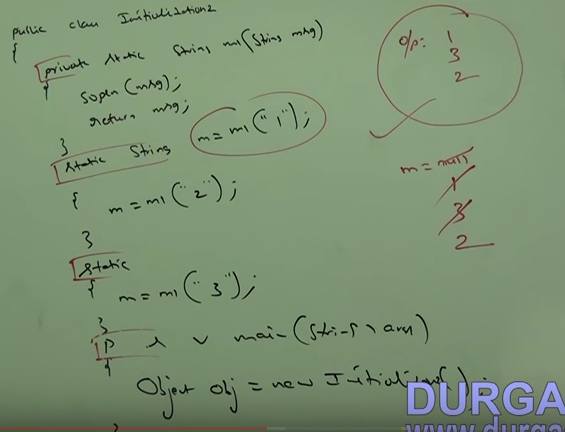 public class Initialization2
{
private static String m1(String msg)
{ sopln(msg);
return msg;
}
static String m = m1("1");
{ m = m1("2");
}
static
{ m = m1("3");
}
P s v main(String[] args)
{
Object obj = new Initialization2();
}
o/p: 1
3
2
m = null
1
3
2
DURGA
www.durga